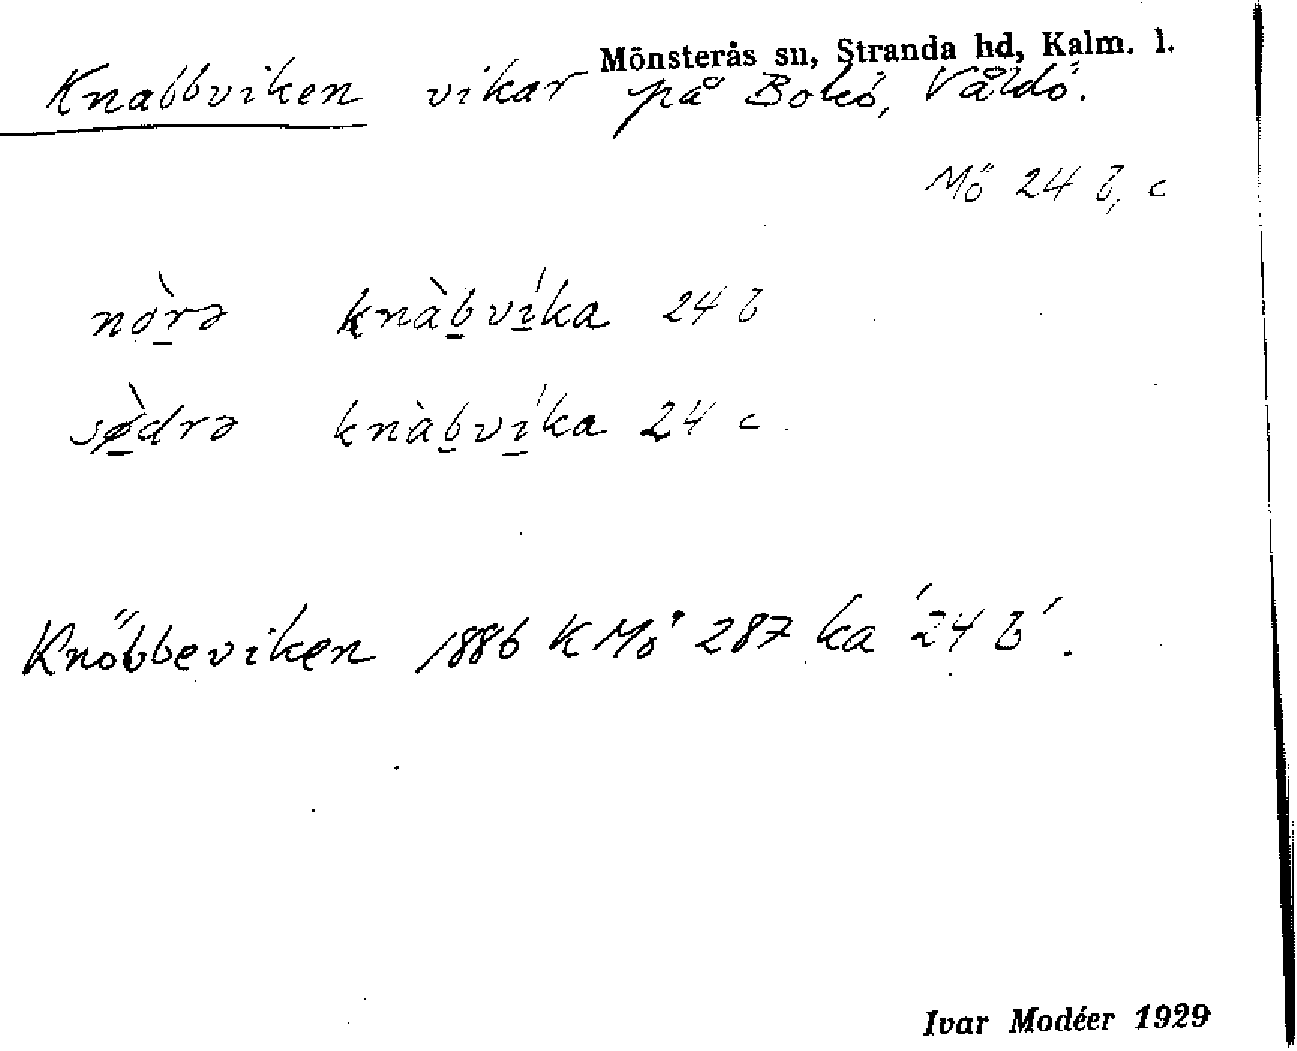 Mönsterås sn, Stranda hd, Kalm. l.
Knabbviken vikar på Bokö, Våldö.
Mö 24 b, c
nòrə knàbvíka 24 b
sødrə knàbvíka 24 c
Knöbbeviken 1886 K Mö 287 ka 24 b.
Ivar Modéer 1929